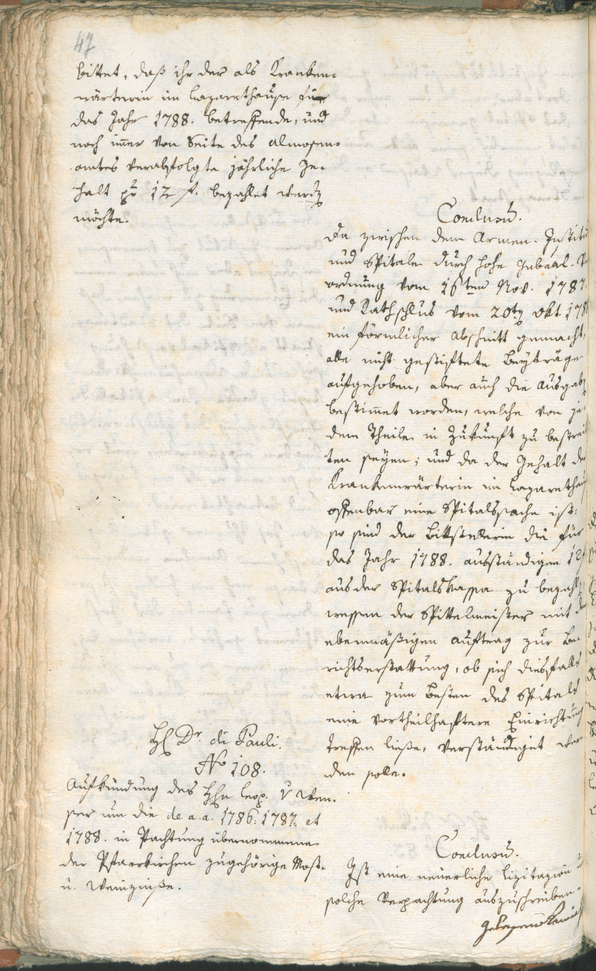 47
bittet, daß ihr der als Kranken-
wärterin im Lazarethhause für
das Jahr 1788. betreffende, und
noch im̅er von Seite des Almosen-
amtes verabfolgte jährliche Ge-
halt pr 12 f. bezahlet werden
möchte.
Conclusum.
Da zwischen dem Armen-Institut
und Spitale durch hohe Gubernial-
ordnung vom 16ten Nov. 1787.
und Rathschluß vom 20ten Okt 178
ein förmlicher Abschnitt gemacht,
alle nicht gestiftete Beyträge
aufgehoben, aber auch die Ausgab
bestim̅et worden, welche von je-
dem Theile in Zukunft zu bestrei
ten seyen; und da der Gehalt der
Krankenwärterin im Lazarethhau
offenbar eine Spitalssache ist:
so sind der Bittstellerin die für
das Jahr 1788. ausständigen 12 f
aus der Spitalskassa zu bezahl
wessen der Spittelmeister mit dem
ebenmäßigen Auftrag zur Be-
richtserstattung, ob sich diesfalls
etwa zum Besten des Spitals
eine vortheilhaftere Einrichtung
treffen ließe, verständiget wer
den solle.
H. Dr. di Pauli.
No 108.
Aufkündung des Hhn Leop. v Wen-
ser um die de a.a. 1786. 1787. et
1788. in Pachtung übernommene
der Pfarrkirchen zugehörige Most-
u. Weinzinse.
Conclusum.
Ist eine neuerliche Lizitazion
solche Verpachtung auszuschreiben.